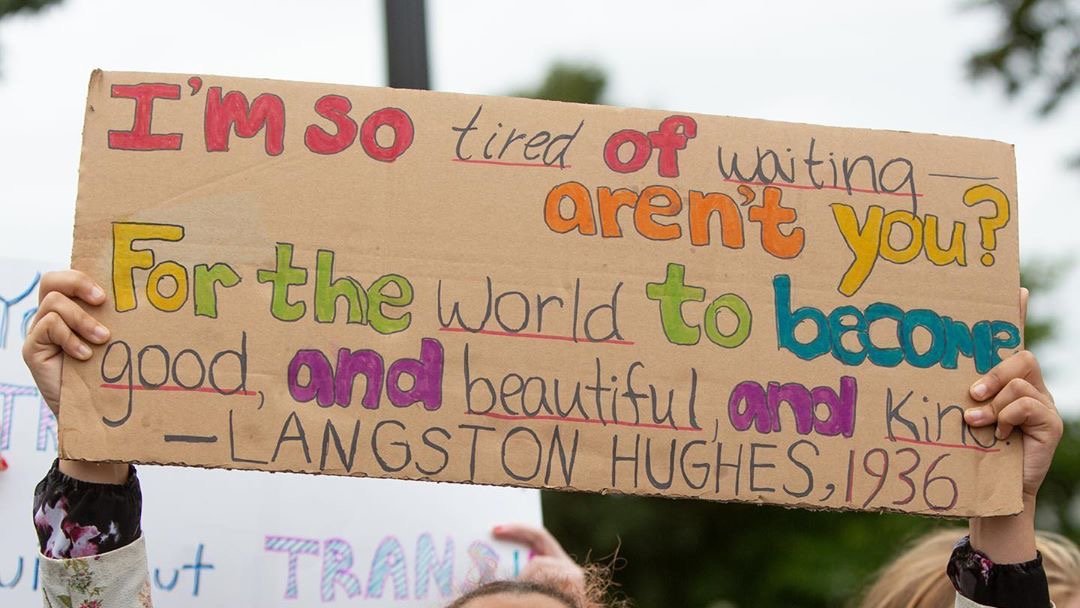 I'm so tired of waiting—
aren't you?
For the world to become
good, and beautiful, and kind
— LANGSTON HUGHES, 1936
TRANS